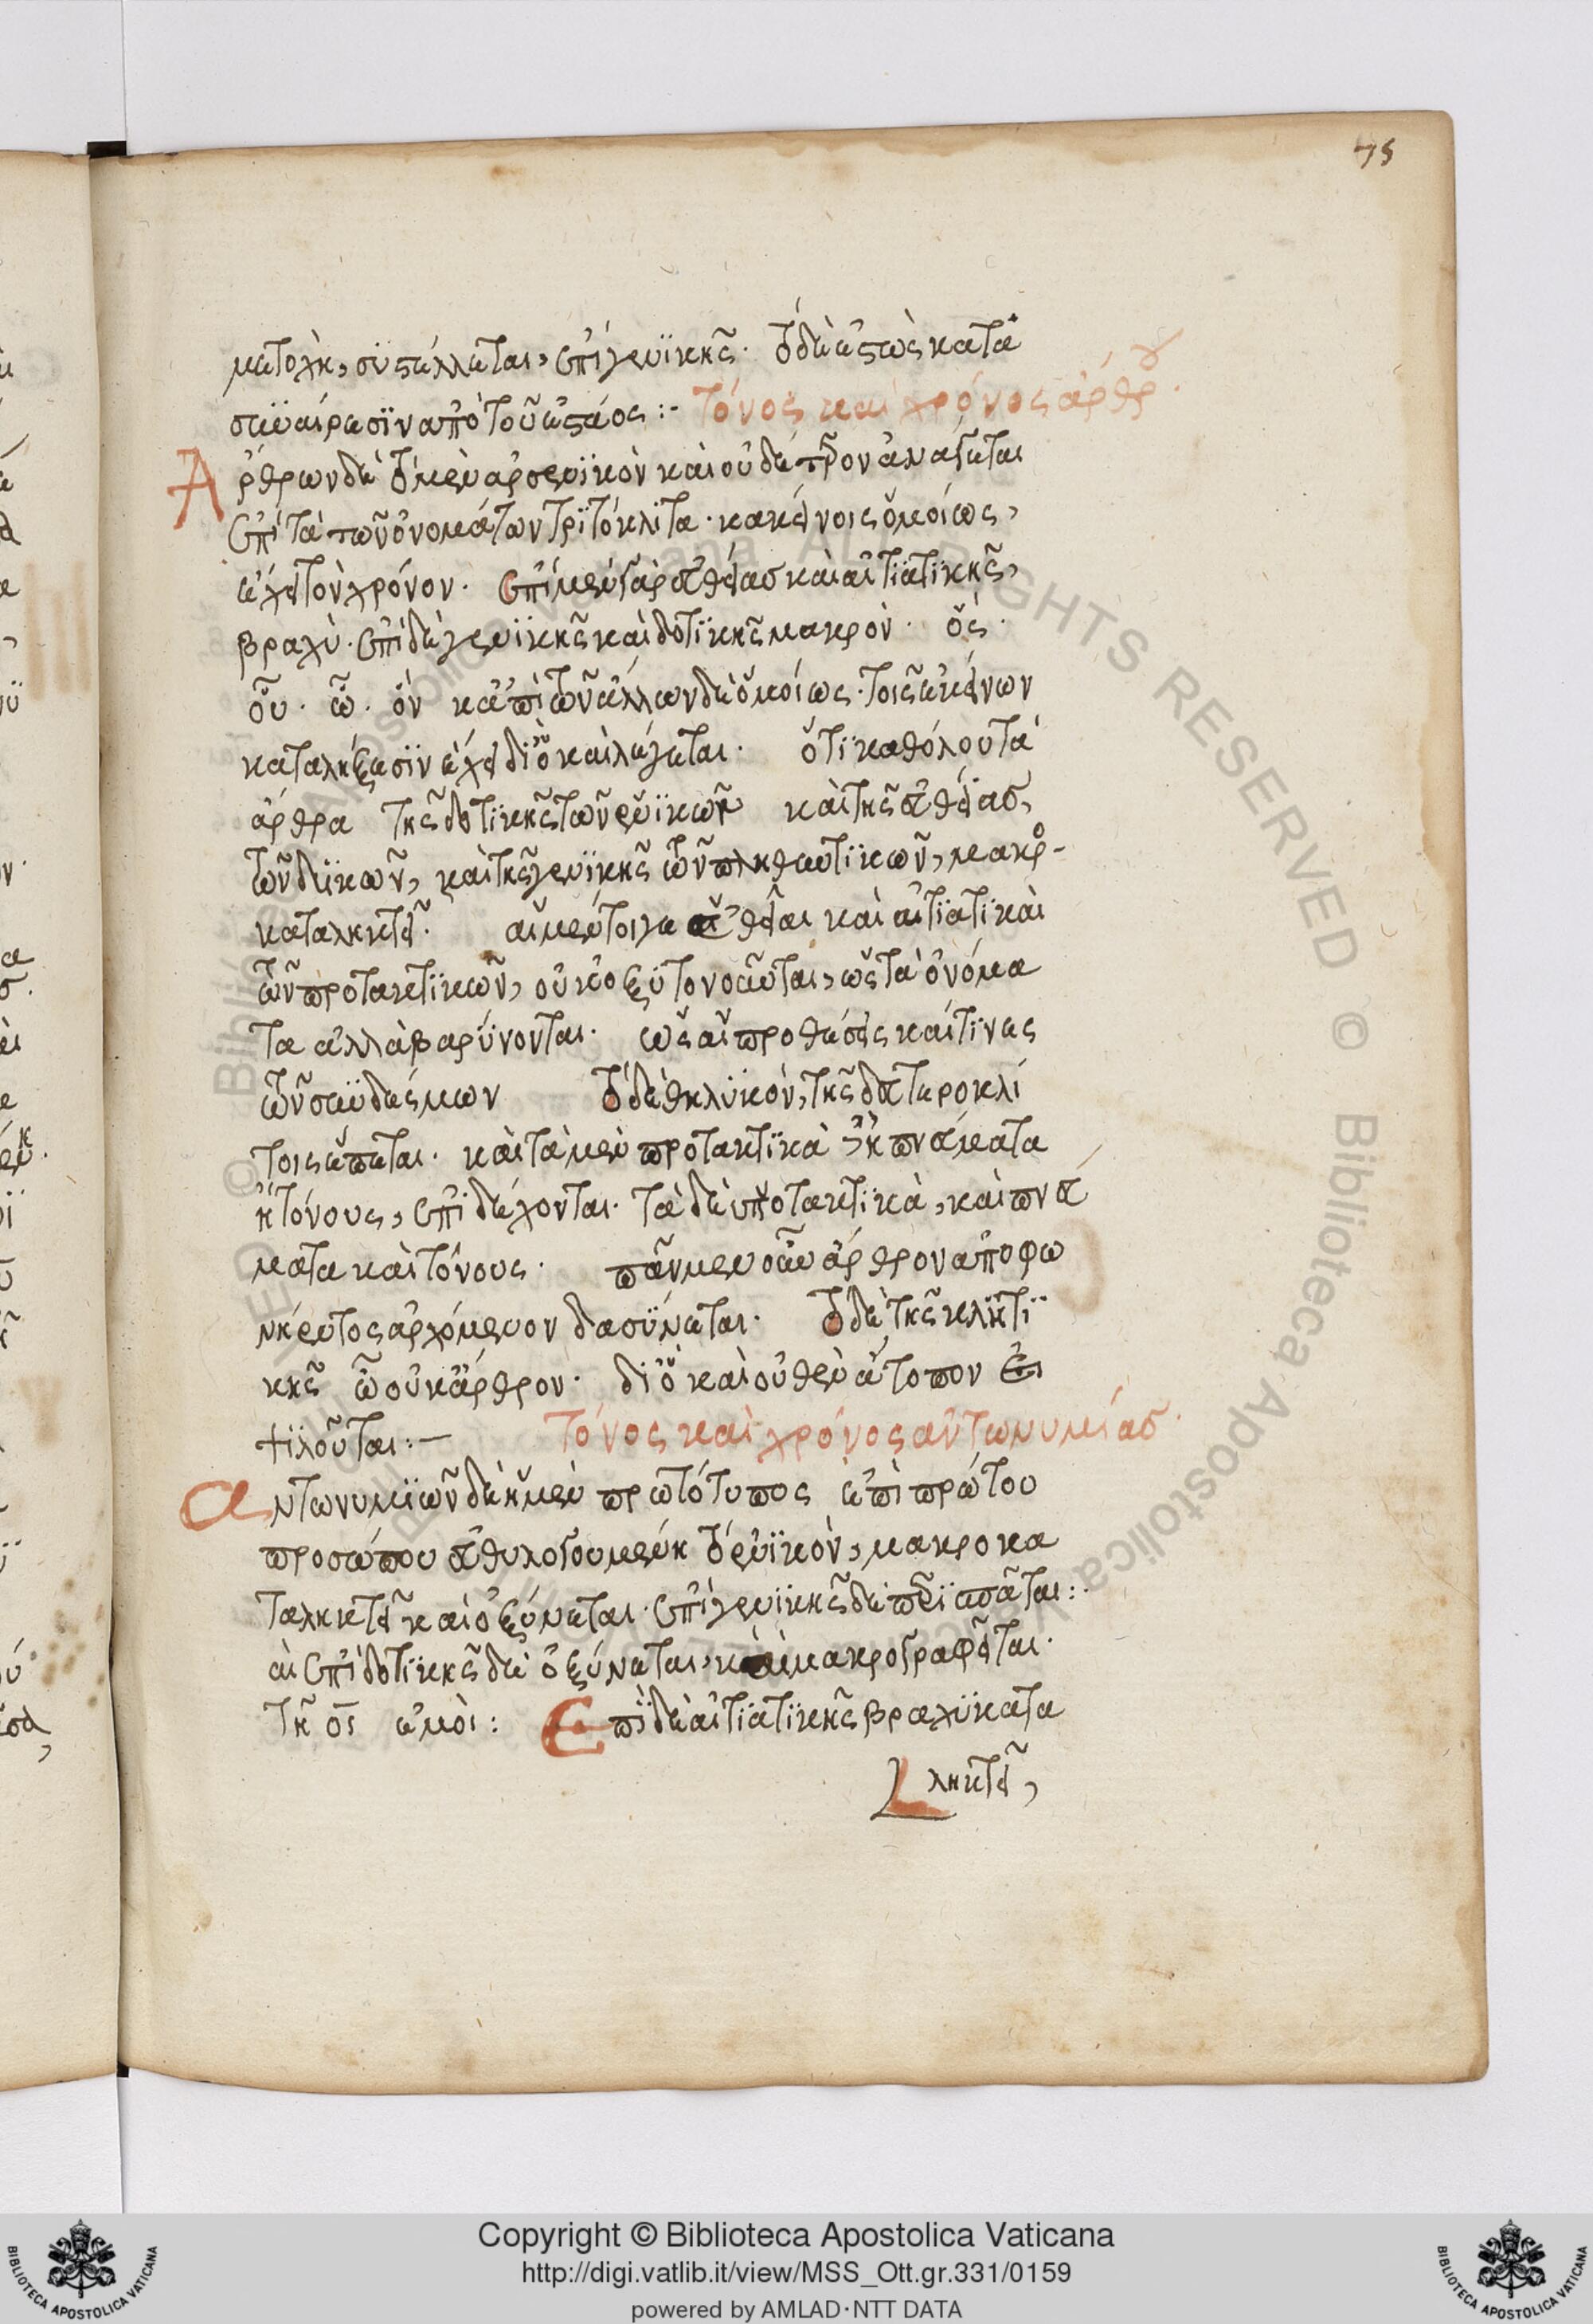 75
μετοχὴ, συστέλλεται, ἐπὶ γενικῆς. τὸ δὲ ἑστὼς κατὰ
συναίρεσιν ἀπὸ τοῦ ἑσταὸς :- τόνος καὶ χρόνος ἄρθρου.
Ἄρθρων δὲ τὸ μὲν ἀρσενικὸν καὶ οὐδέτερον ἀνάγεται
ἐπὶ τὰ τῶν ὀνομάτων τριτόκλιτα. κἀκείνοις ὁμοίως,
ἔχει τὸν χρόνον. ἐπὶ μὲν γὰρ εὐθείας καὶ αἰτιατικῆς,
βραχὺ. ἐπὶ δὲ γενικῆς καὶ δοτικῆς μακρὸν. ὅς.
οὗ. ᾧ. ὅν κἀπὶ τῶν ἄλλων δὲ ὁμοίως. τοῖς ἐκείνων
καταλήξεσιν ἔχει διὸ καὶ λέγεται. ὅτι καθόλου τὰ
ἄρθρα τῆς δοτικῆς τῶν ἑνικῶν καὶ τῆς εὐθείας,
τῶν δυικῶν, καὶ τῆς γενικῆς τῶν πληθυντικῶν, μακρο-
καταληκτεῖ. αἱ μέντοιγε εὐθεῖαι καὶ αἰτιατικαὶ
τῶν προτακτικῶν, οὐκ ὀξυτονοῦνται, ὡς τὰ ὀνόμα
τα ἀλλὰ βαρύνονται. ὡς αἱ προθέσεις καί τινες
τῶν συνδέσμων τὸ δὲ θηλυκὸν, τῆς δευτεροκλί
τοις ἕπεται. καὶ τὰ μὲν προτακτικὰ ἢ πνεύματα
ἢ τόνους, ἐπιδέχονται. τὰ δὲ ὑποτακτικὰ, καὶ πνεύ
ματα καὶ τόνους. πᾶν μὲν οὖν ἄρθρον ἀπὸ φω
νήεντος ἀρχόμενον δασύνεται. τὸ δὲ τῆς κλητι
κῆς ὦ οὐκ ἄρθρον. διὸ καὶ οὐθὲν ἄτοπον εἰ
ψιλοῦται :- τόνος καὶ χρόνος ἀντωνυμίας.
Ἀντωνυμιῶν δὲ ἡ μὲν πρωτότυπος ἐπὶ πρώτου
προσώπου εὐθυλογουμένη τὸ ἑνικὸν, μακροκα
ταληκτεῖ καὶ ὀξύνεται. ἐπὶ γενικῆς δὲ περισπᾶται :.
αἱ ἐπὶ δοτικῆς δὲ ὀξύνεται, καὶ μακρογραφεῖται.
τῇ οι ἐμοὶ : Ἐπὶ δὲ αἰτιατικῆς βραχυκατα
ληκτεῖ,
Copyright © Biblioteca Apostolica Vaticana
http://digi.vatlib.it/view/MSS_Ott.gr.331/0159
powered by AMLAD·NTT DATA